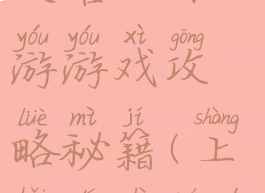 yóu yóu xì gōng
游游戏攻
lüè mì jí shàng
略秘籍(上